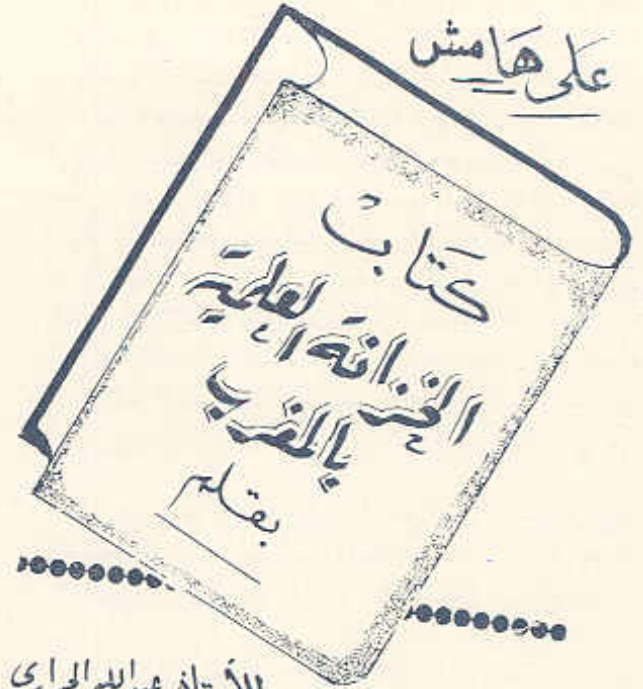 عَلى هَامش
كتابْ
الخزانة العلمية
بالمغرب
بقلم
للأستاذ عبد الله الجراري